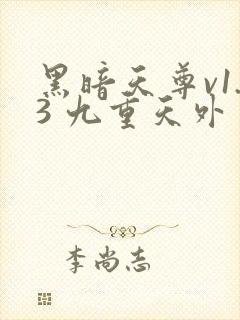 黑暗天尊v1.
3 九重天外
李尚志